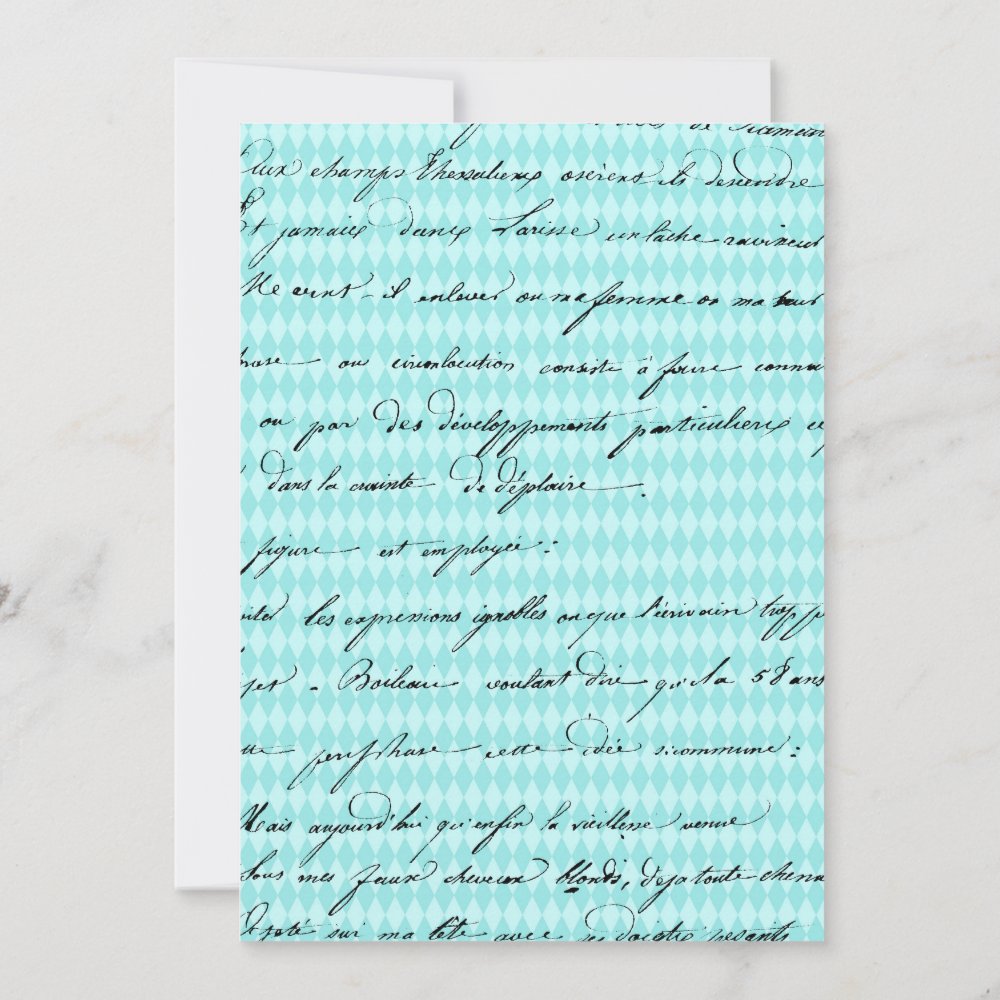 de
Aux champs Thessaliens osèrent ils descendre
Et jamais dans Larisse un lâche ravisseur
Me vint-il enlever ou ma femme ou ma sœur
hrase ou circonlocution consiste à faire conna
ou par des développements particuliers
dans la crainte de déplaire.
figure est employée:
iter les expressions ignobles ou que l'écrivain trop
jet - Boileau voulant dire qu'il a 58 ans
tte periphrase cette idée si commune:
Mais aujourd'hui qu'enfin la vieillesse venue
Sous mes faux cheveux blonds, déja toute chenu
A jeté sur ma tête avec ses doigts pesants